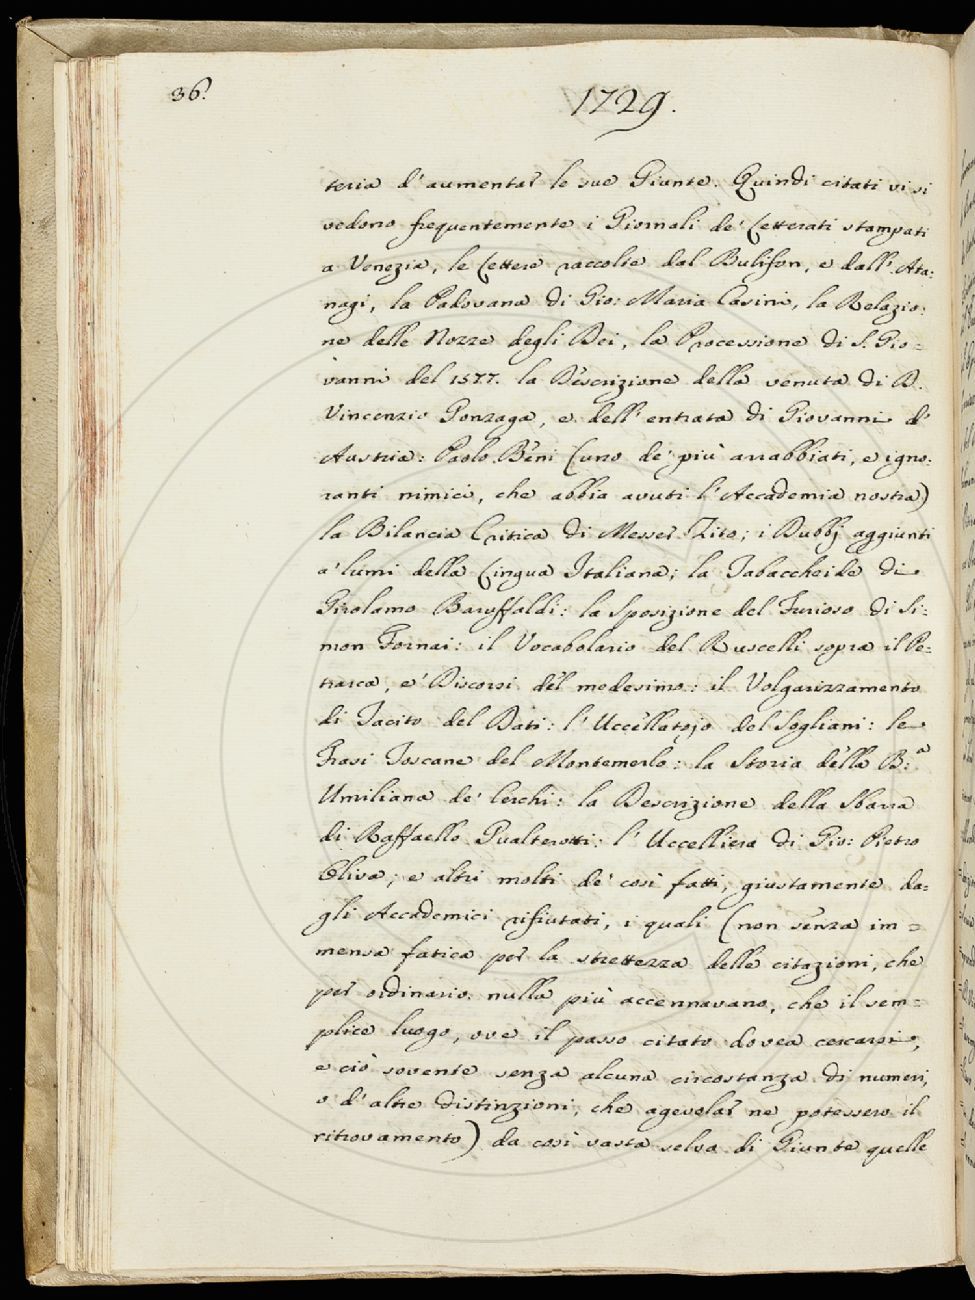 36.
1729.
teria d'aumentar le sue Giunte. Quindi citati vi si
vedono frequentemente i Giornali de' Letterati stampati
a Venezia, le Lettere raccolte dal Bulifon, e dall' Ata:
nagi, la Padovana di Gio: Maria Casini, la Relazio:
ne delle Nozze degli Dei, la Processione di S. Gio=
vanni del 1577. la Descrizione della venuta di D.
Vincenzio Gonzaga, e dell' entrata di Giovanni d'
Austria: Paolo Beni (uno de' più arrabbiati, e igno:
ranti nimici, che abbia avuti l'Accademia nostra)
la Bilancia Critica di Messer Tito; i Dubbj aggiunti
a' lumi della Lingua Italiana; la Tabaccheide di
Girolamo Baruffaldi: la Sposizione del Furioso di Si:
mon Fornai: il Vocabolario del Ruscelli sopra il Pe=
trarca, e' Discorsi del medesimo: il Volgarizzamento
di Tacito del Dati: l'Uccellatojo del Sogliani: le
Frasi Toscane del Montemerlo: la Storia della B:a
Umiliana de' Cerchi: la Descrizione della Sbarra
di Raffaello Gualterotti: l'Uccelliera di Gio: Pietro
Oliva; e altri molti de' così fatti, giustamente da=
gli Accademici rifiutati, i quali (non senza im=
mensa fatica per la strettezza delle citazioni, che
per ordinario nulla più accennavano, che il sem=
plice luogo, ove il passo citato dovea cercarsi,
e ciò sovente senza alcuna circostanza di numeri,
o d'altre distinzioni, che agevolar ne potessero il
ritrovamento) da così vasta selva di Giunte quelle